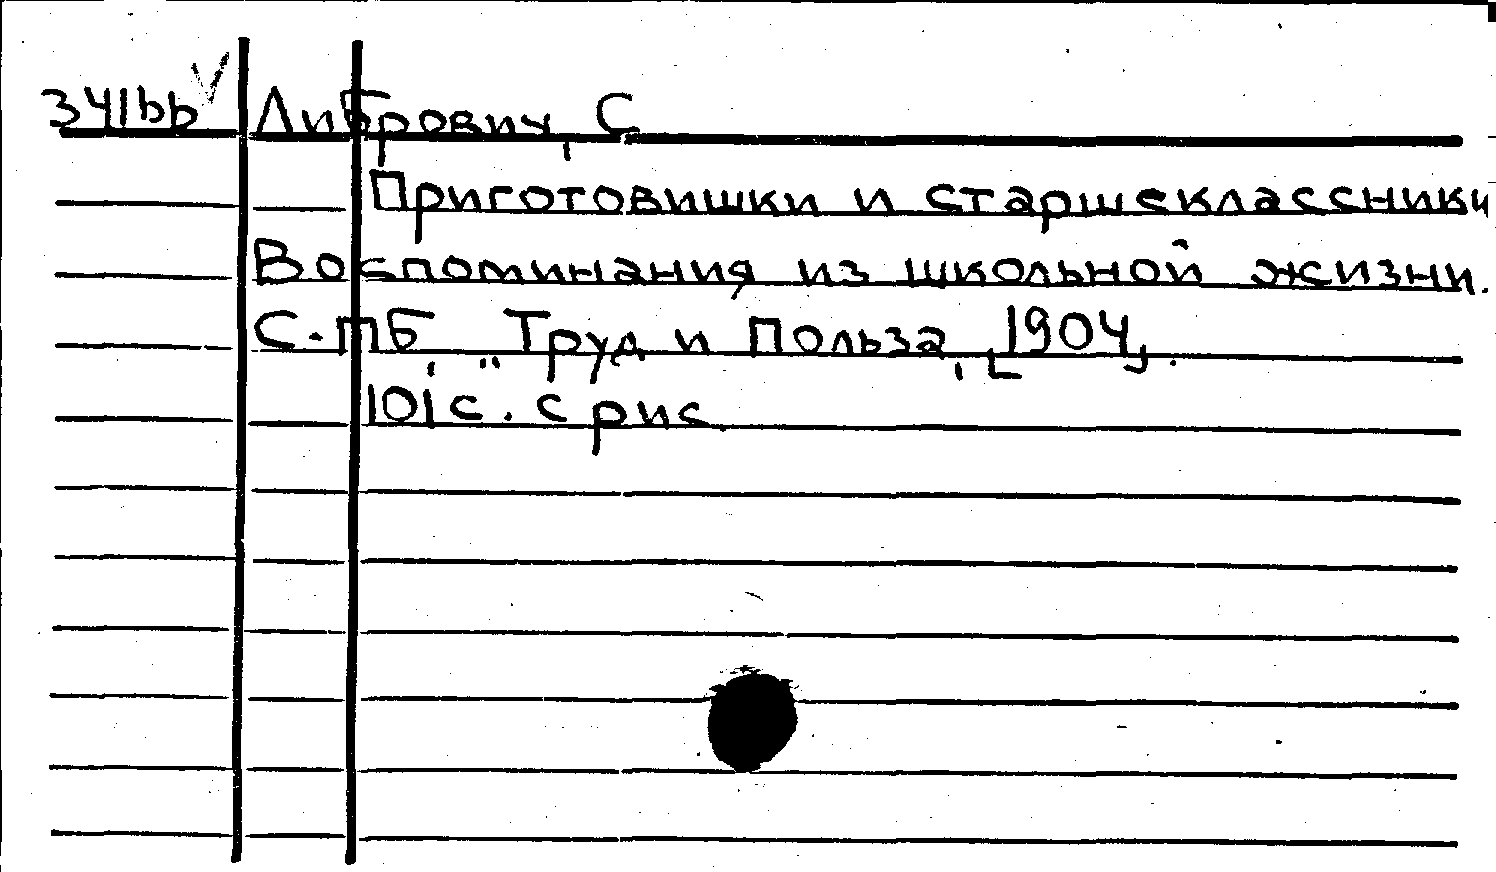 341bb Либрович, С
Приготовишки и старшеклассники
Воспоминания из школьной жизни.
С-ПБ, "Труд и Польза, [1904].
101с. с рис.